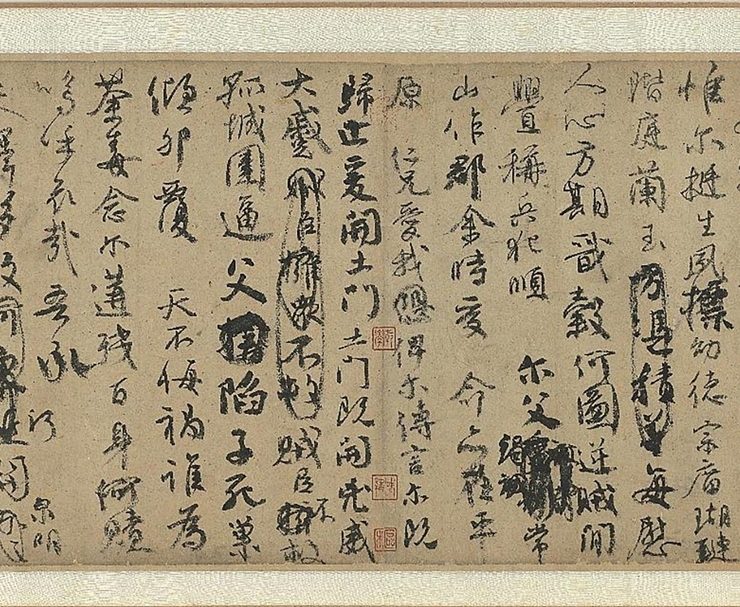 惟尔挺生夙標幼德宗廟瑚璉
階庭蘭玉每慰
人心方期戩穀何圖逆賊間
釁稱兵犯順尔父竭誠常
山作郡余時受命亦在平
原仁兄愛我俾尔傳言尔既
歸止爰開土門土門既開凶威
大蹙賊臣擁眾不救賊臣不救
孤城圍逼父陷子死巢
傾卵覆天不悔禍誰為
荼毒念尔遘殘百身何贖
嗚呼哀哉吾承
天澤移牧河關泉明